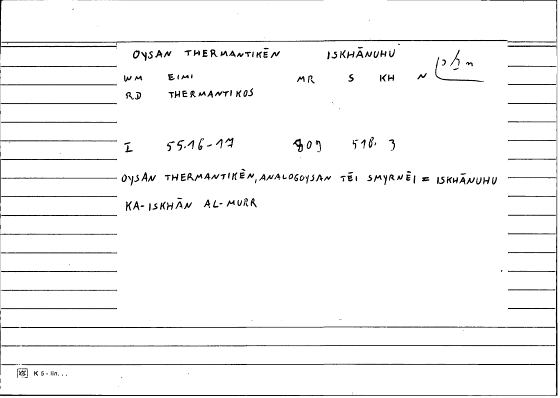 OYSAN THERMANTIKĒN ISKHĀNUHU
WM EIMI MR S KH N
RD THERMANTIKOS
I 55.16-17 809 518. 3
OYSAN THERMANTIKĒN, ANALOGOYSAN TĒI SMYRNĒI = ISKHĀNUHU
KA-ISKHĀN AL-MURR
K 5 - lin. . .